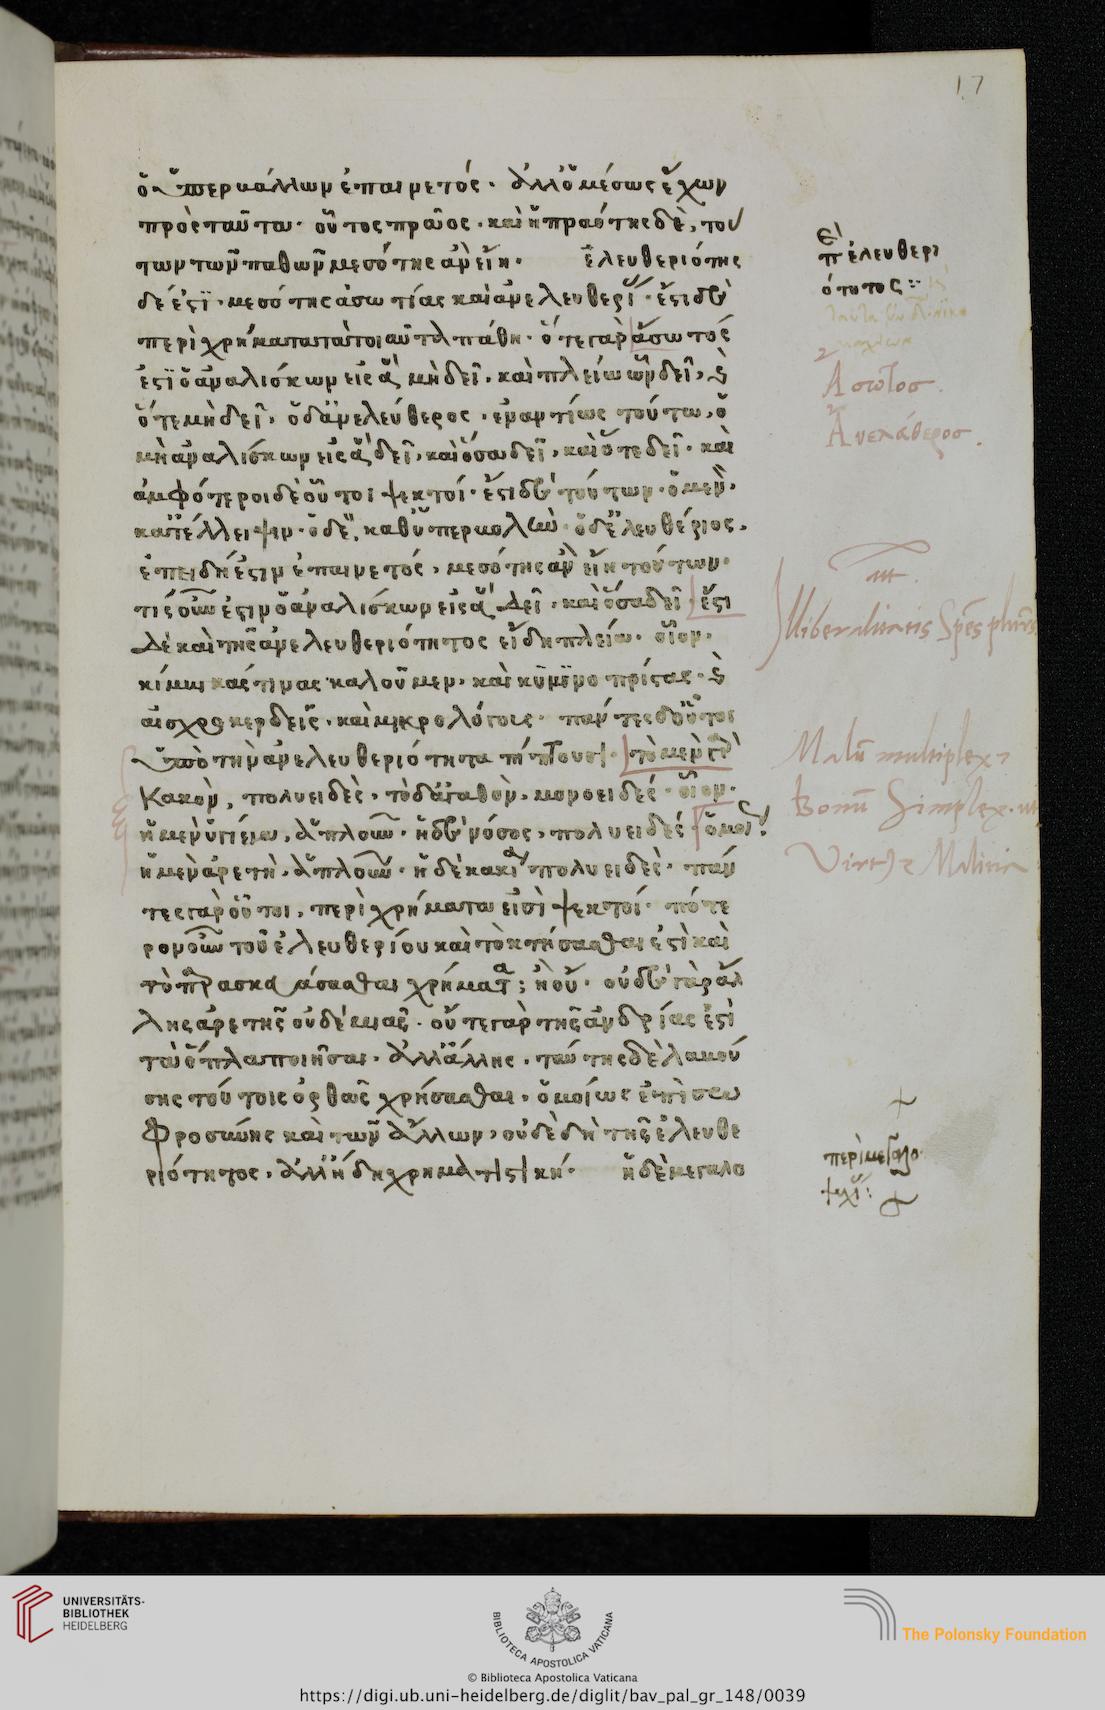 17
ὁ ὑπερβάλλων ἐπαινετός· ἀλλ' ὁ μέσως ἔχων
πρὸς ταῦτα· οὗτος πρᾶος· καὶ ἡ πραότης δὲ, τού
των τῶν παθῶν μεσότης ἂν εἴη· Ἐλευθεριότης
δέ ἐστι· μεσότης ἀσωτίας καὶ ἀνελευθερί· ἔστι δὲ
περὶ χρήματα τὰ τοιαῦτα πάθη· ὅ τε γὰρ ἄσωτός
ἐστι ὁ ἀναλίσκων εἰς ἃ μὴ δεῖ· καὶ πλείω ὧν δεῖ· καὶ
ὅτε μὴ δεῖ· ὁ δ' ἀνελεύθερος· ἐναντίως τούτω· ὁ
μὴ ἀναλίσκων εἰς ἃ δεῖ· καὶ ὅσα δεῖ· καὶ ὅτε δεῖ· καὶ
ἀμφότεροι δὲ οὗτοι ψεκτοί· ἔστι δὲ τούτων· ὁ μὲν·
κατ' ἔλλειψιν· ὁ δὲ, καθ' ὑπερβολὴν· ὁ δ' ἐλευθέριος·
ἐπειδή ἐστιν ἐπαινετός, μεσότης ἂν εἴη τούτων·
τίς οὖν ἐστιν ὁ ἀναλίσκων εἰς ἃ δεῖ· καὶ ὅσα δεῖ ἔστι
δὲ καὶ τῆς ἀνελευθεριότητος εἴδη πλείω· οἷον·
κίμβικάς τινας καλοῦμεν· καὶ κυμινοπρίστας· καὶ
αἰσχροκερδεῖς· καὶ μικρολόγους· πάντες δ' οὗτοι
ὑπὸ τὴν ἀνελευθεριότητα τὸ μὲν γὰρ
κακὸν, πολυειδὲς· τὸ δ' ἀγαθὸν, μονοειδές· οἷον·
ἡ μὲν ὑγίεια, ἁπλοῦν· ἡ δὲ νόσος, πολυειδές ὁμοί
ἡ μὲν ἀρετὴ, ἁπλοῦν· ἡ δὲ κακία πολυειδὲς· πάν
τες γὰρ οὗτοι, περὶ χρήματα εἰσὶ ψεκτοί· πότε
ρον οὖν τοῦ ἐλευθερίου καὶ τὸ κτήσασθαι ἐστὶ καὶ
τὸ παρασκευάσασθαι χρήματα; ἢ οὔ· οὐδὲ γὰρ ἄλ
λης ἀρετῆς οὐδεμιᾶς· οὔτε γὰρ τῆς ἀνδρίας ἐστὶ
τὰ ὅπλα ποιῆσαι· ἀλλ' ἄλλης· ταύτης δὲ λαβού
σης τούτοις ὀρθῶς χρήσασθαι· ὁμοίως ἐπὶ σω
φροσύνης καὶ τῶν ἄλλων, οὐδὲ δὴ τῆς ἐλευθε
ριότητος, ἀλλ' ἤδη χρηματιστική· ἡ δὲ μεγαλο
ἐλευθερι
ότητος
Ασωτος
Ἀνελάθεροσ.
aut.
Illiberalitatis Spēs plures
Malū multiplex
Bonū Simplex. ut
Virt9 & Malitia
περὶ μεγαλο
ψυχί:
UNIVERSITÄTS-
BIBLIOTHEK
HEIDELBERG
BIBLIOTECA APOSTOLICA VATICANA
The Polonsky Foundation
© Biblioteca Apostolica Vaticana
https://digi.ub.uni-heidelberg.de/diglit/bav_pal_gr_148/0039